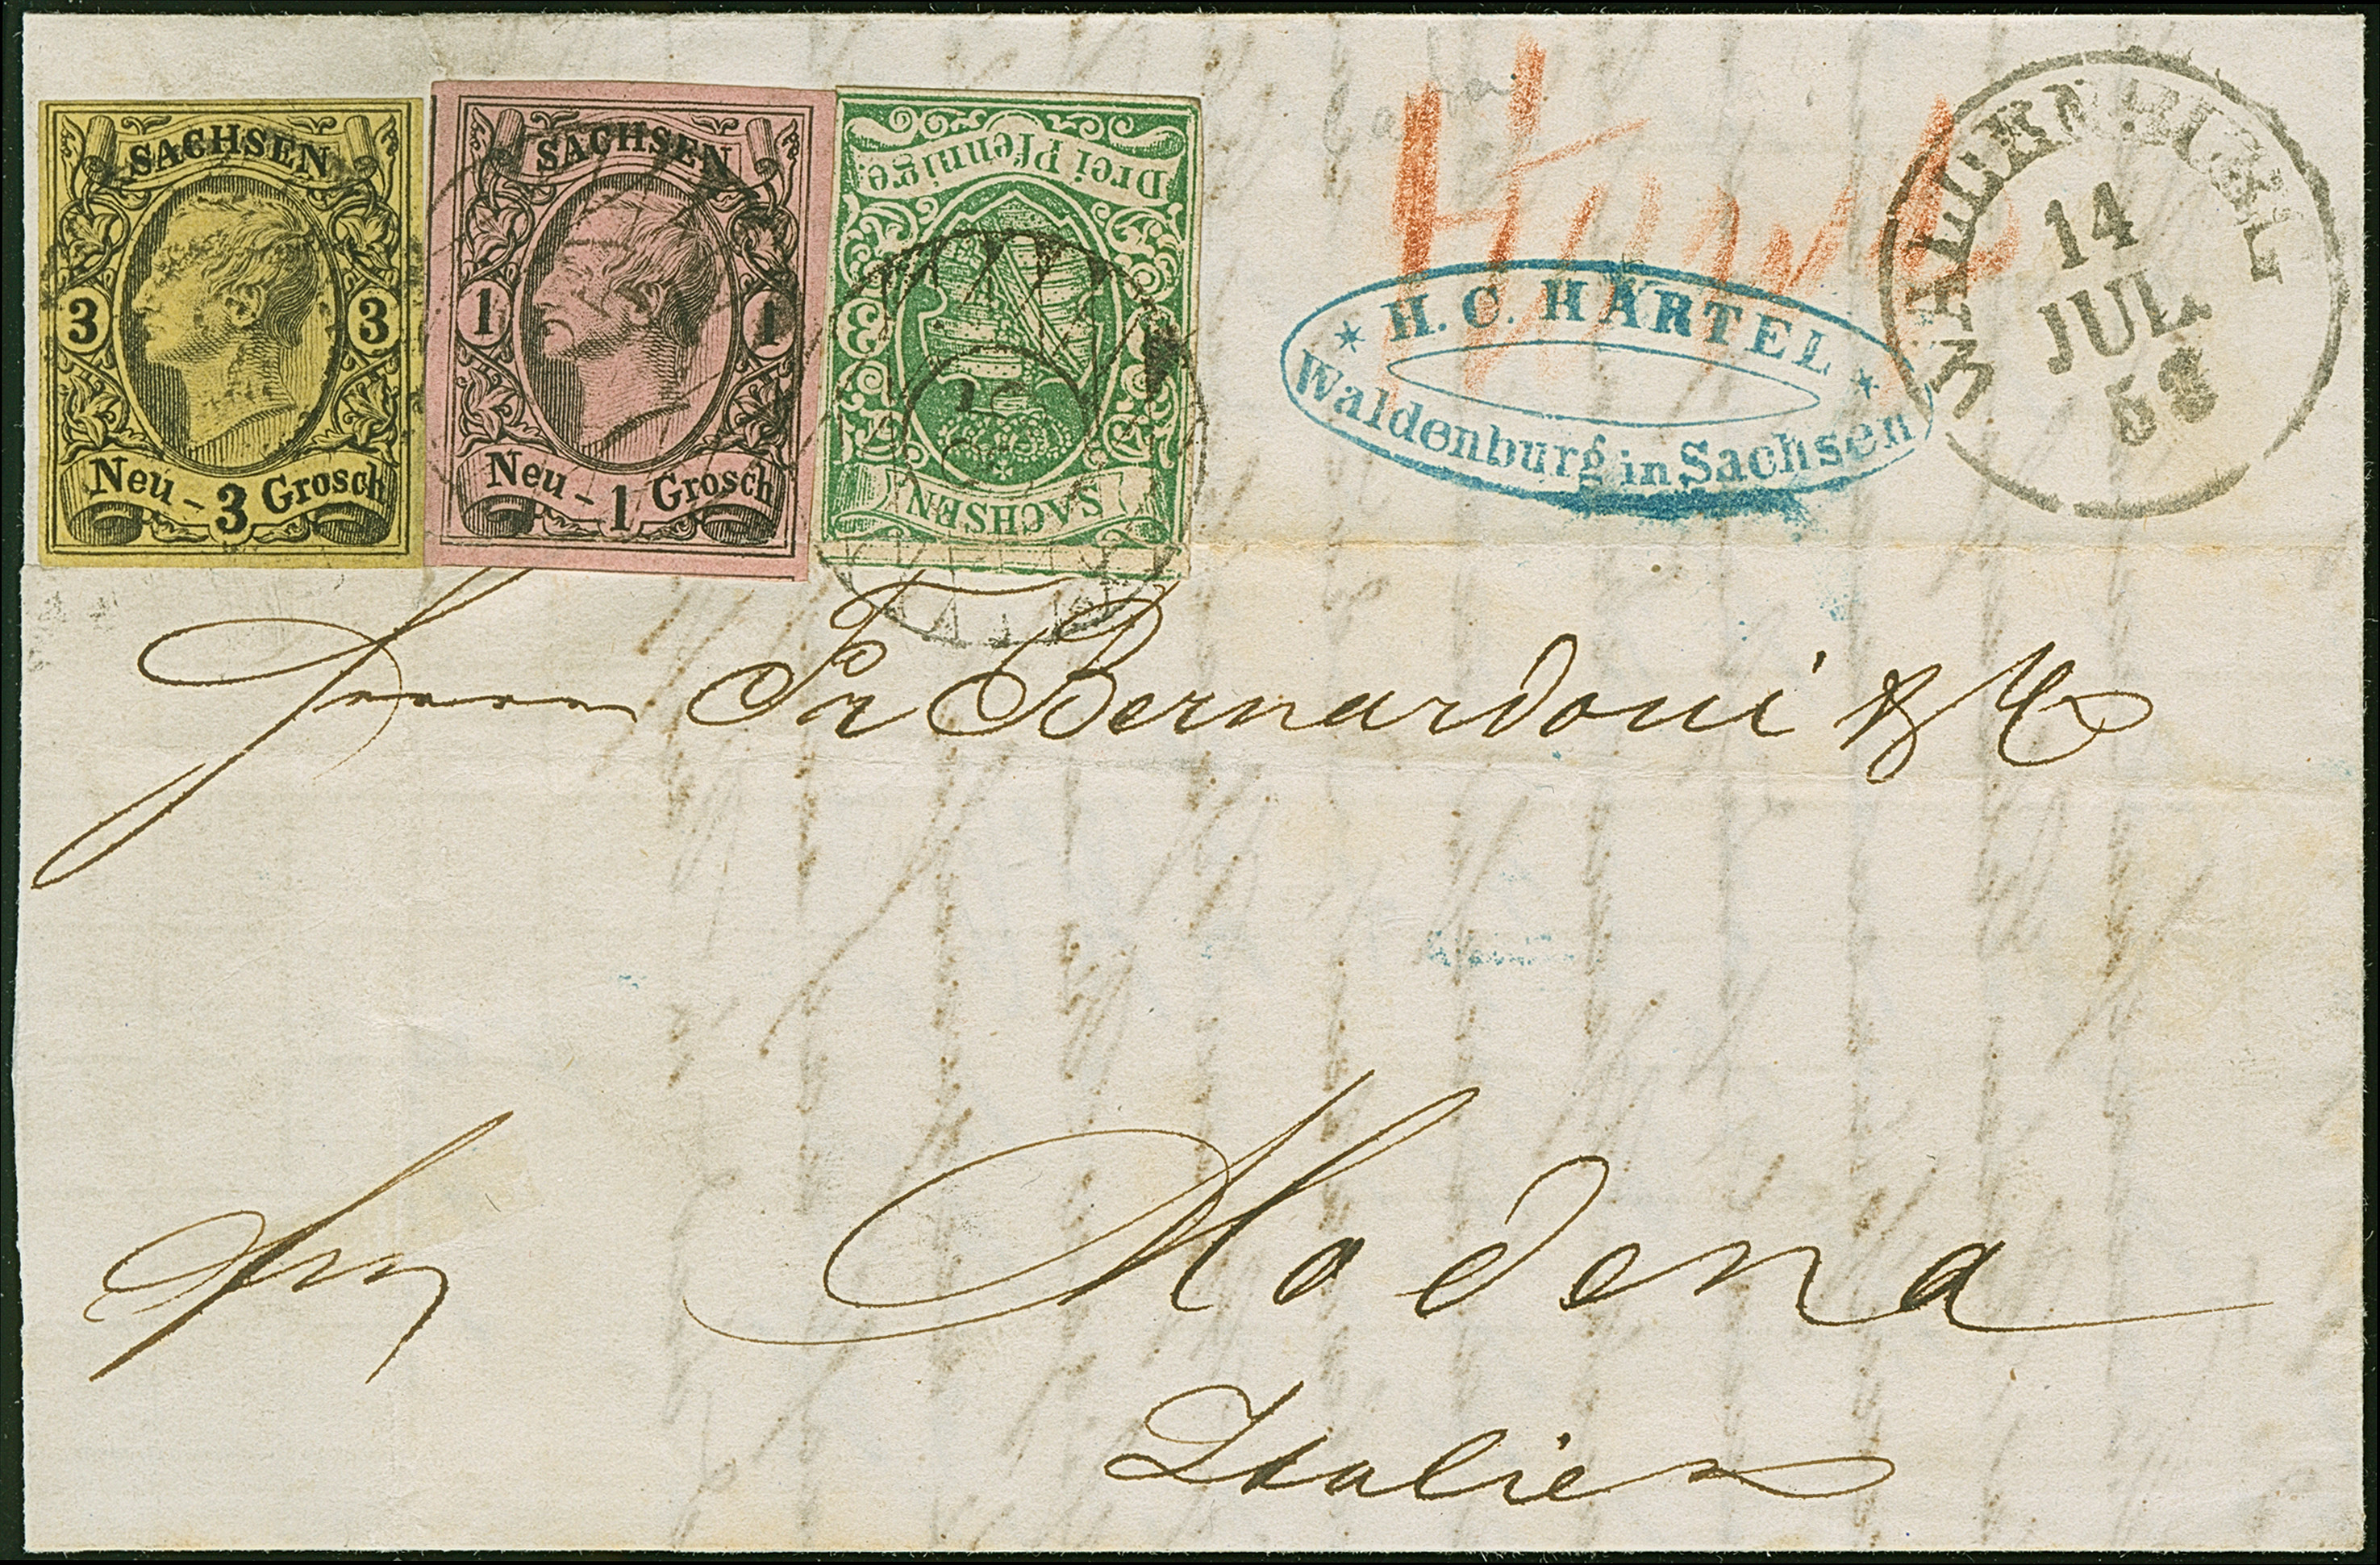 SACHSEN
3 3
Neu-3 Grosch
SACHSEN
1 1
Neu-1 Grosch
Drei Pfennige.
SACHSEN
* H. C. HÄRTEL *
Waldenburg in Sachsen
WALDENBURG
14
JUL
58
Herrn Fr Bernardoni & Co
Modena
Italien